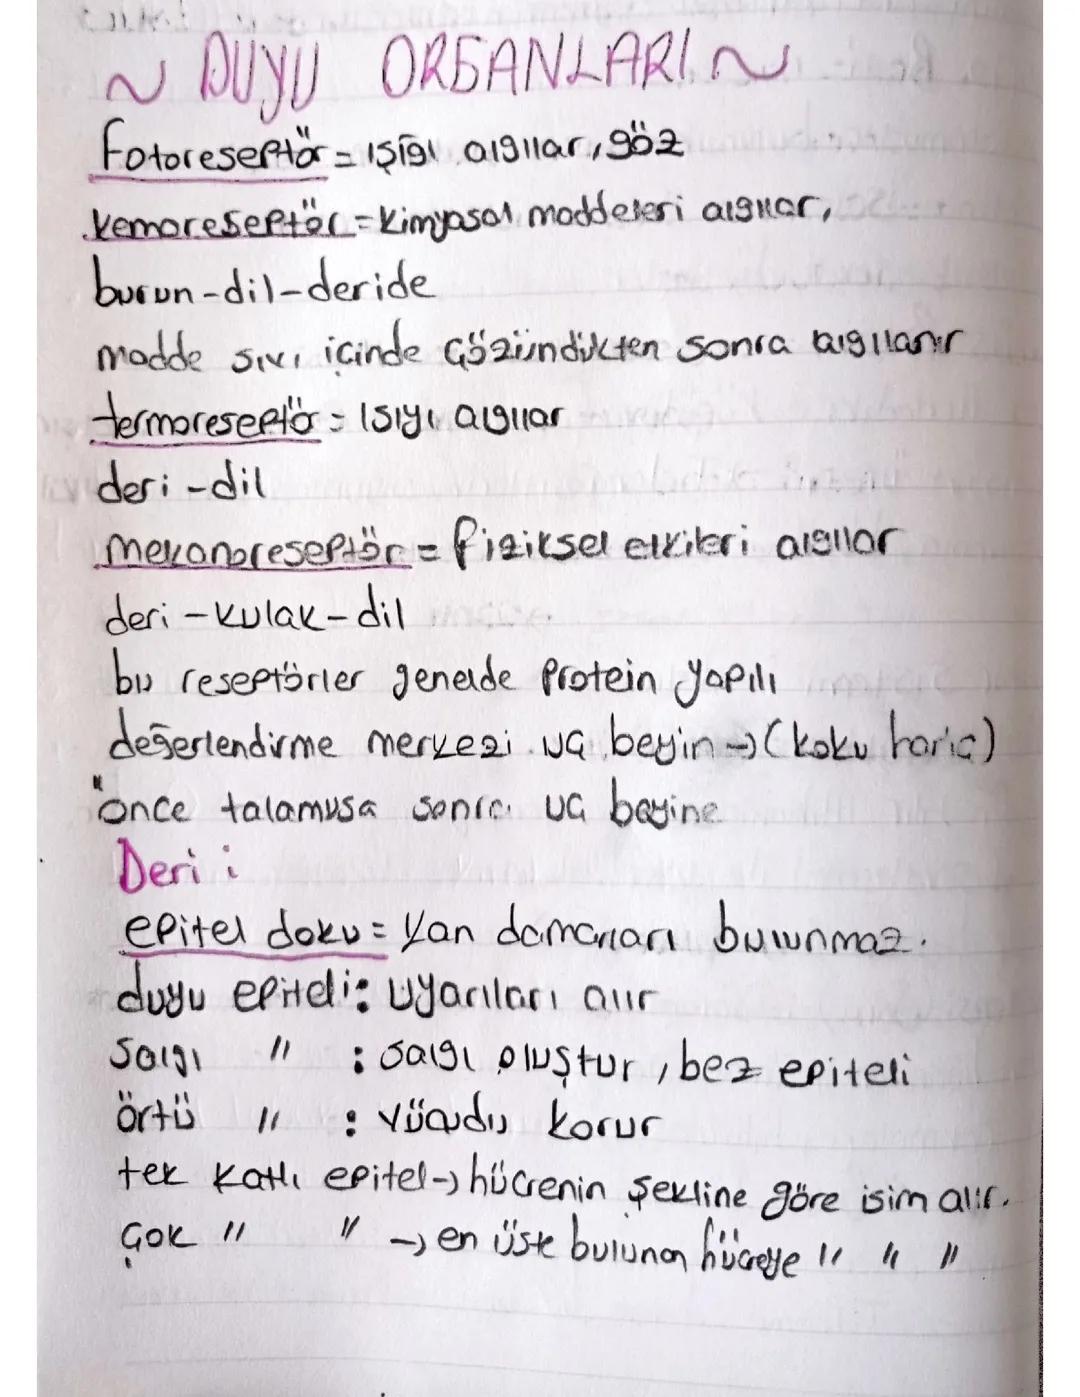 ~ DUYU ORGANLARI ~
fotoreseptör = ışığı algılar, göz
kemoreseptör = kimyasal maddeleri algılar,
burun-dil-deride
madde sıvı içinde çözündükten sonra algılanır
termoreseptör = ısıyı algılar
deri-dil
mekanoreseptör = fiziksel etkileri algılar
deri-kulak-dil
bu reseptörler genelde protein yapılı
değerlendirme merkezi uç beyin → (koku hariç)
önce talamusa sonra uç beyine
Deri:
epitel doku = kan damarları bulunmaz.
duyu epiteli: uyarıları alır
salgı " : salgı oluştur, bez epiteli
örtü " : vücudu korur
tek katlı epitel → hücrenin şekline göre isim alır.
çok " " → en üste bulunan hücreye " " "